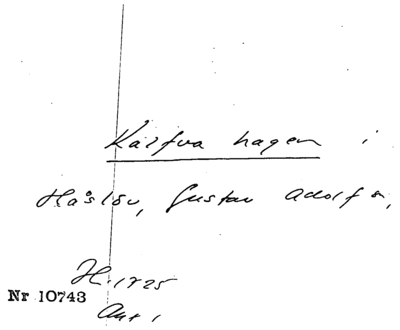 Kärfva hagen i
Håslöv, Gustav Adolf sn,
H. 1825
Nr 10743
Akt 1